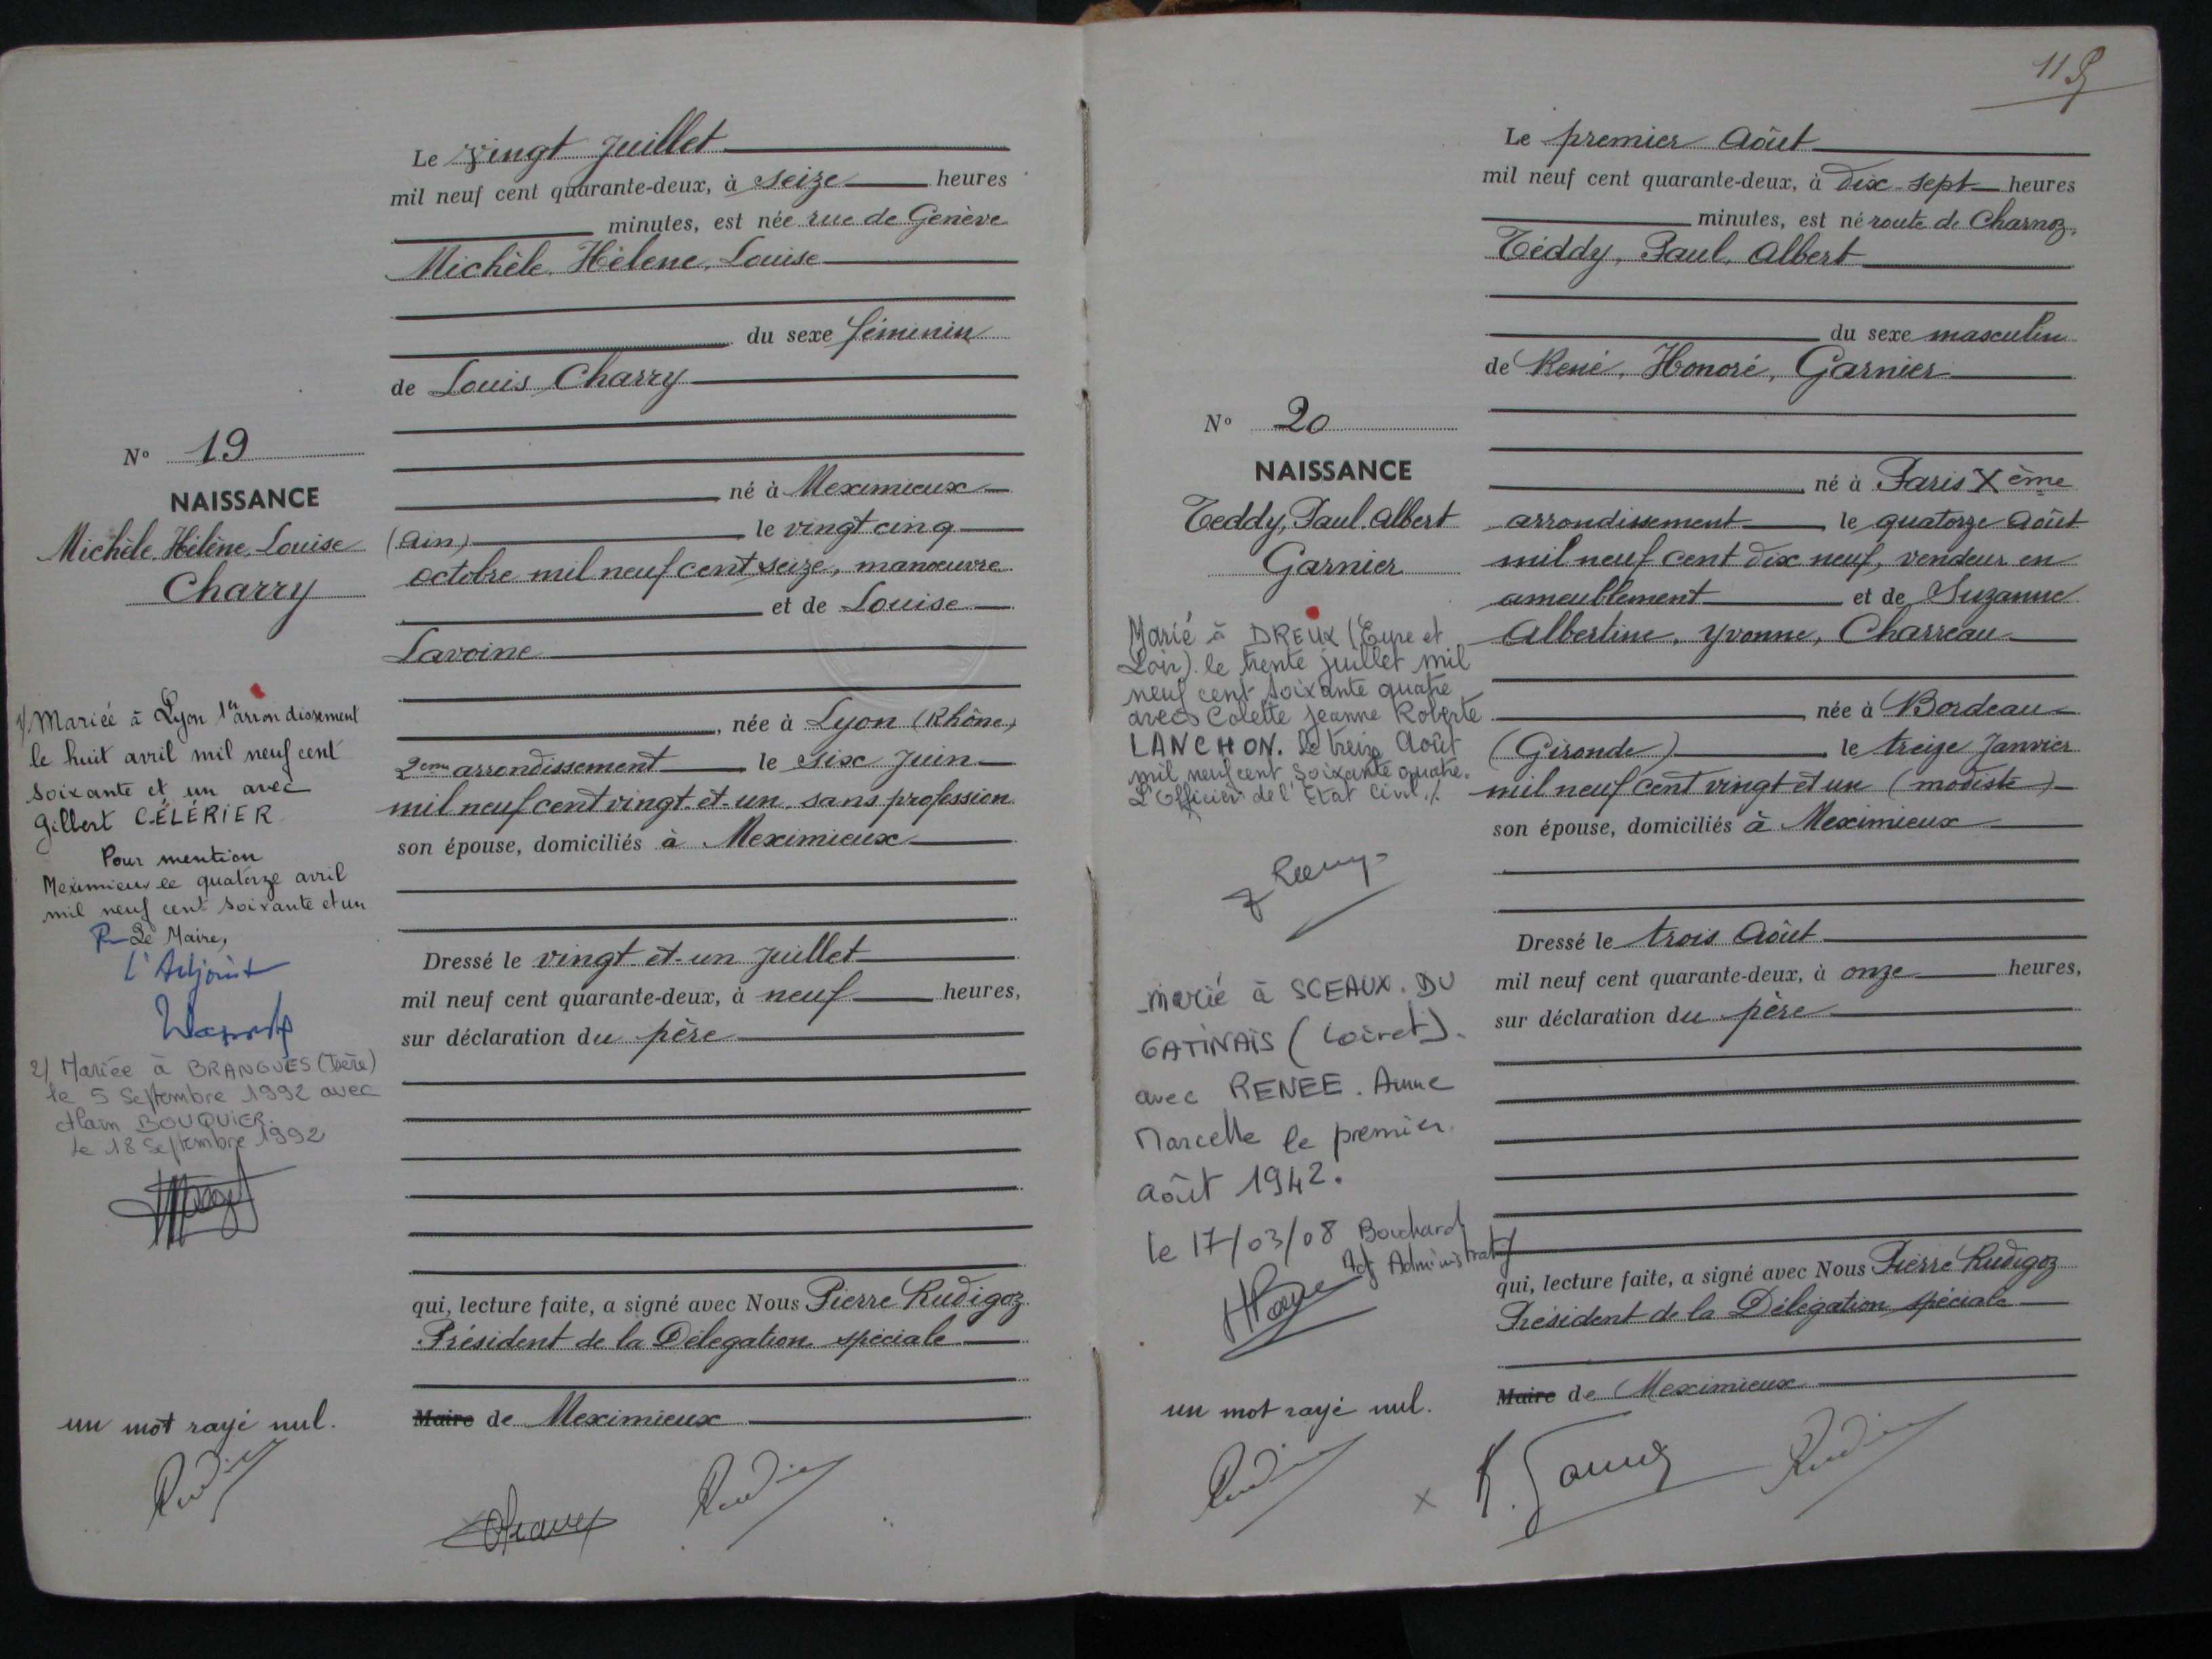 Le vingt juillet
mil neuf cent quarante-deux, à seize heures
minutes, est née rue de Genève
Michèle, Hélène, Louise
du sexe féminin
de Louis Charry
né à Meximieux
(Ain) le vingt cinq
octobre mil neuf cent seize, manœuvre
et de Louise
Lavoine
, née à Lyon (Rhône)
2eme arrondissement le six Juin
mil neuf cent vingt-et-un sans profession
son épouse, domiciliés à Meximieux
Dressé le vingt-et-un juillet
mil neuf cent quarante-deux, à neuf heures,
sur déclaration du père
qui, lecture faite, a signé avec Nous Pierre Rudigoz
Président de la Délégation spéciale
Maire de Meximieux
No 19
NAISSANCE
Michèle, Hélène, Louise
Charry
1/ Mariée à Lyon 1er arrondissement
le huit avril mil neuf cent
soixante et un avec
Gilbert CÉLÉRIER
Pour mention
Meximieux le quatorze avril
mil neuf cent soixante et un
P- Le Maire,
L'Adjoint
2/ Mariée à BRANGUES (Isère)
le 5 Septembre 1992 avec
Alain BOUQUIER.
le 18 Septembre 1992
un mot rayé nul.
115
Le premier Août
mil neuf cent quarante-deux, à dix-sept heures
minutes, est né route de Charnoz,
Téddy, Paul, Albert
du sexe masculin
de René, Honoré, Garnier
né à Paris Xème
arrondissement le quatorze Août
mil neuf cent dix neuf, vendeur en
ameublement et de Suzanne
Albertine, Yvonne, Charreau
née à Bordeau
(Gironde) le treize Janvier
mil neuf cent vingt et un (modiste)
son épouse, domiciliés à Meximieux
Dressé le trois Août
mil neuf cent quarante-deux, à onze heures,
sur déclaration du père
qui, lecture faite, a signé avec Nous Pierre Rudigoz
Président de la Délégation spéciale
Maire de Meximieux
No 20
NAISSANCE
Teddy, Paul, Albert
Garnier
Marié à DREUX (Eure et
Loir) le trente juillet mil
neuf cent soixante quatre
avec Colette Jeanne Roberte
LANCHON. Le treize Août
mil neuf cent soixante quatre.
L'Officier de l'Etat Civil ./.
marié à SCEAUX. DU
GATINAIS (Loiret).
avec RENEE. Anne
Marcelle le premier
août 1942.
le 17/03/08 Bouchard
Adj Administratif
un mot rayé nul.